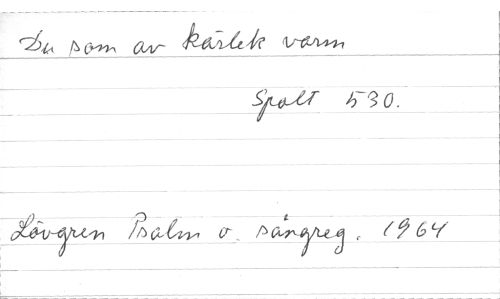 Du som av kärlek varm
Spalt 530.
Lövgren Psalm o. sångreg. 1964